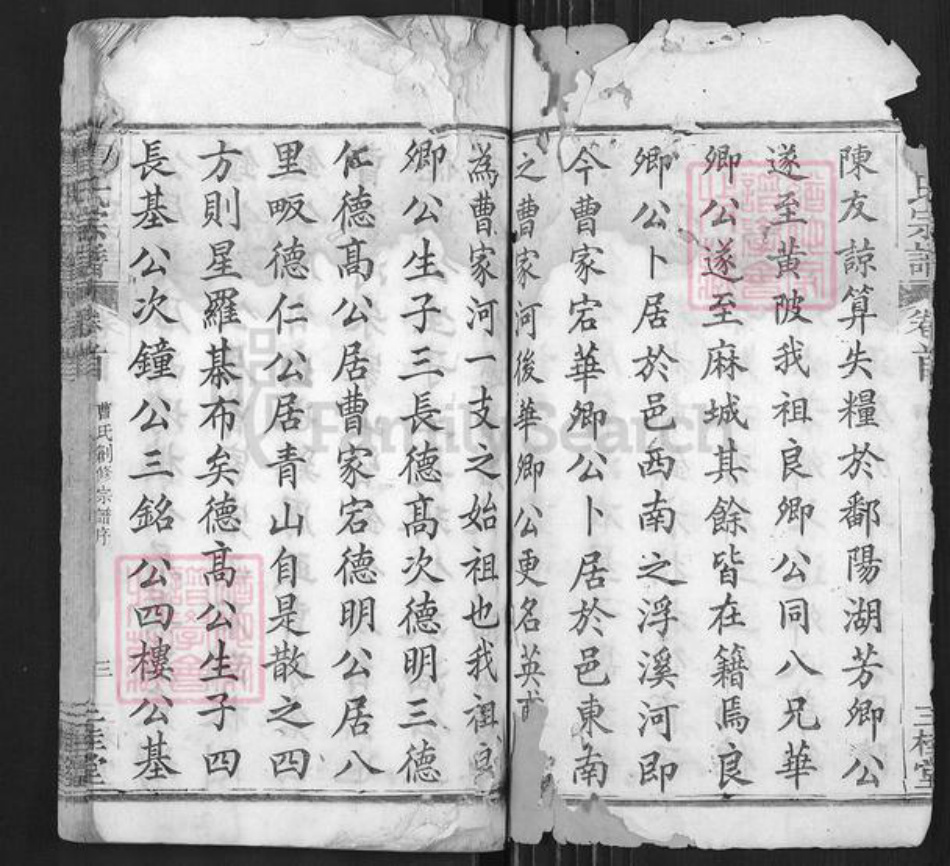 氏宗譜 卷首 三桂堂
陳友諒算失糧於鄱陽湖芳卿公
遂至黃陂我祖良卿公同八兄華
卿公遂至麻城其餘皆在籍焉良
卿公卜居於邑西南之浮溪河即
今曹家宕華卿公卜居於邑東南
之曹家河後華卿公更名英甫
為曹家河一支之始祖也我祖良
卿公生子三長德高次德明三德
仁德高公居曹家宕德明公居八
里畈德仁公居青山自是散之四
方則星羅棊布矣德高公生子四
長基公次鐘公三銘公四樓公基
氏宗譜 卷首 曹氏創修宗譜序 三 三桂堂
FamilySearch